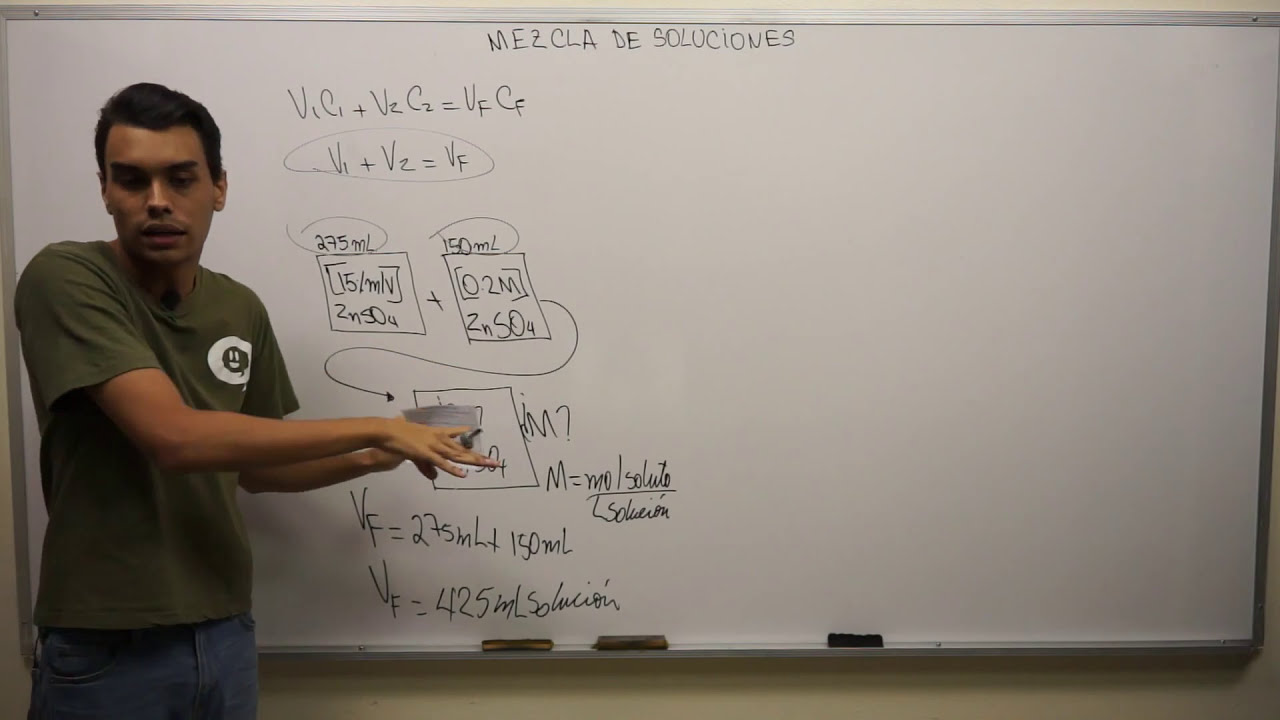 MEZCLA DE SOLUCIONES
V₁C₁ + V₂C₂ = V_F C_F
V₁ + V₂ = V_F
275mL 150mL
[15/m/V] + [0.2M]
ZnSO₄ ZnSO₄
¿M?
SO₄
M = mol soluto
L solución
V_F = 275mL + 150mL
V_F = 425mL solución